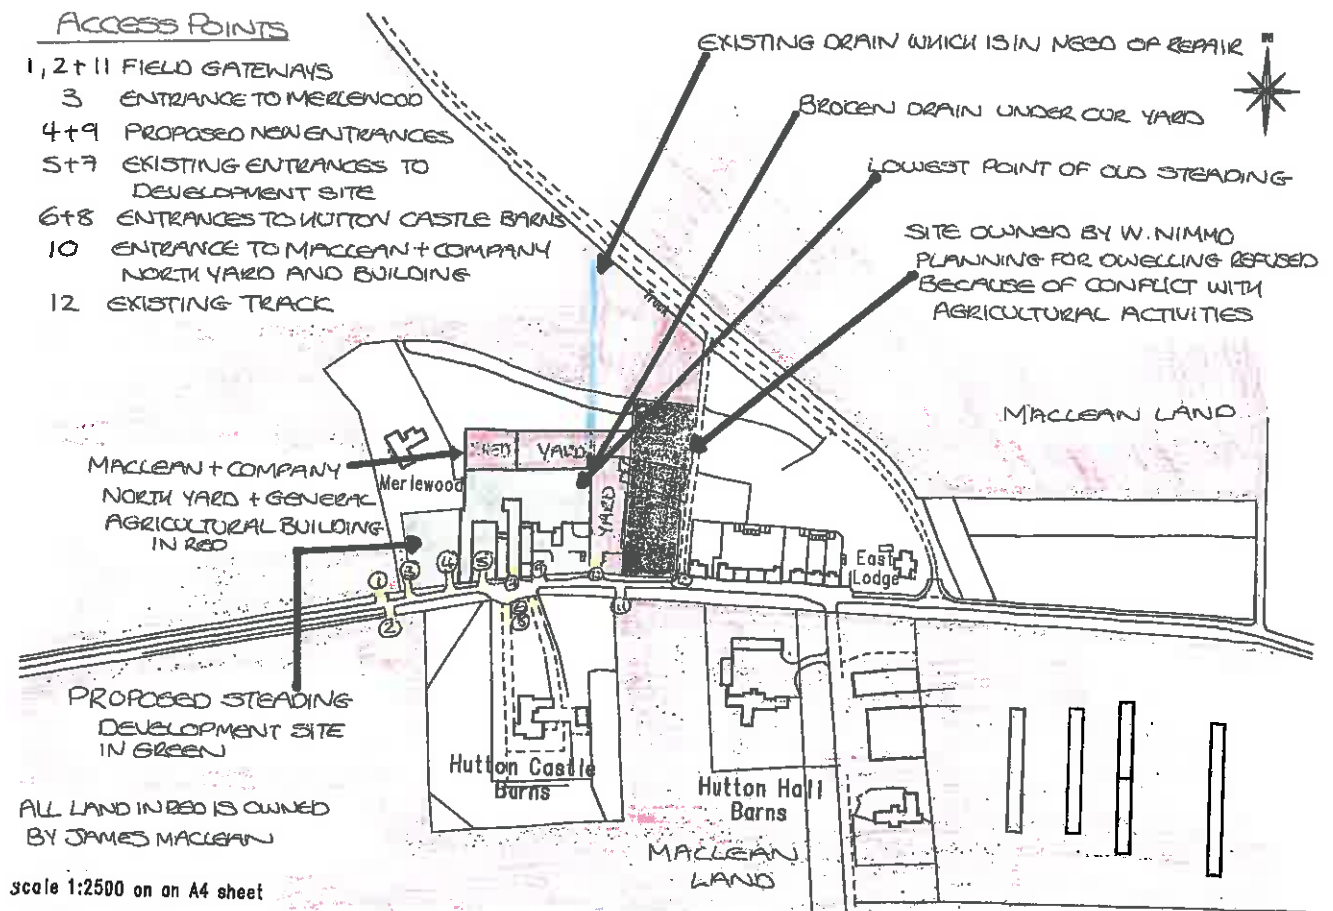 ACCESS POINTS
1, 2 + 11 FIELD GATEWAYS
3 ENTRANCE TO MERLEWOOD
4+9 PROPOSED NEW ENTRANCES
5+7 EXISTING ENTRANCES TO
DEVELOPMENT SITE
6+8 ENTRANCES TO HUTTON CASTLE BARNS
10 ENTRANCE TO MACLEAN + COMPANY
NORTH YARD AND BUILDING
12 EXISTING TRACK
EXISTING DRAIN WHICH IS IN NEED OF REPAIR
N
BROKEN DRAIN UNDER OUR YARD
LOWEST POINT OF OLD STEADING
SITE OWNED BY W. NIMMO
PLANNING FOR DWELLING REFUSED
BECAUSE OF CONFLICT WITH
AGRICULTURAL ACTIVITIES
Track
MACLEAN LAND
SHED
YARD
MACLEAN + COMPANY
NORTH YARD + GENERAL
AGRICULTURAL BUILDING
IN RED
Merlewood
YARD
East
Lodge
1
3
4
5
2
11
PROPOSED STEADING
DEVELOPMENT SITE
IN GREEN
Hutton Castle
Barns
Hutton Hall
Barns
ALL LAND IN RED IS OWNED
BY JAMES MACLEAN
MACLEAN
LAND
scale 1:2500 on an A4 sheet